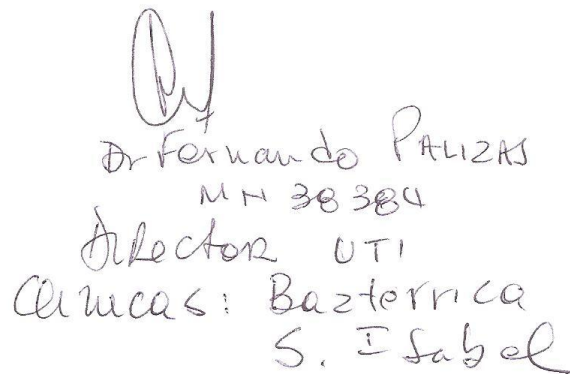 Dr Fernando PALIZAS
MN 38384
DiRectoR UTI
Clinicas: Bazterrica
S. Isabel